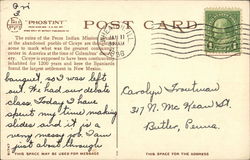 Fri
3
"PHOSTINT"
POST CARD
The ruins of the Pecos Indian Mission
at the abandoned pueblo of Cicuye are
some to mark what was the greatest
center in America at the time of Columbus'
Cicuye is supposed to have been continuously
inhabited for 1,200 years and here the Spaniards
found the largest settlement in New Mexico.
banquet, so I was left
out. We had our debate
class today. I have
spent my time making
slides and it is a
very messy job. I am
just about through
Carolyn Troutman
317 N. McKean St.
Butler, Penna.
THIS SPACE MAY BE USED FOR MESSAGE
THIS SPACE FOR THE ADDRESS